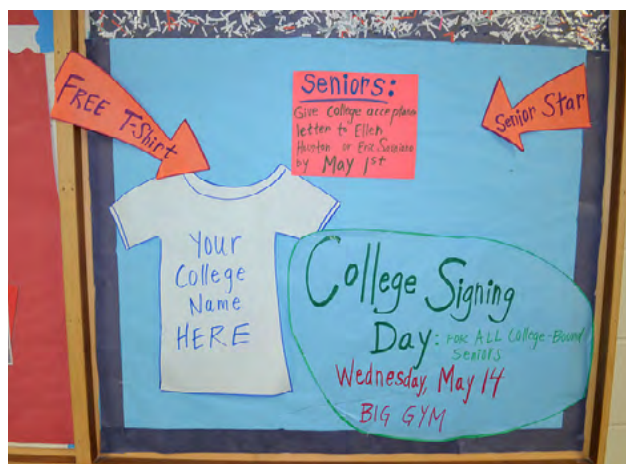 FREE T-Shirt
Seniors:
Give College acceptance
letter to Ellen
Houston or Eric
by May 1st
Senior Star
Your
College
Name
HERE
College Signing
Day: FOR ALL College-Bound
Seniors
Wednesday, May 14
BIG GYM